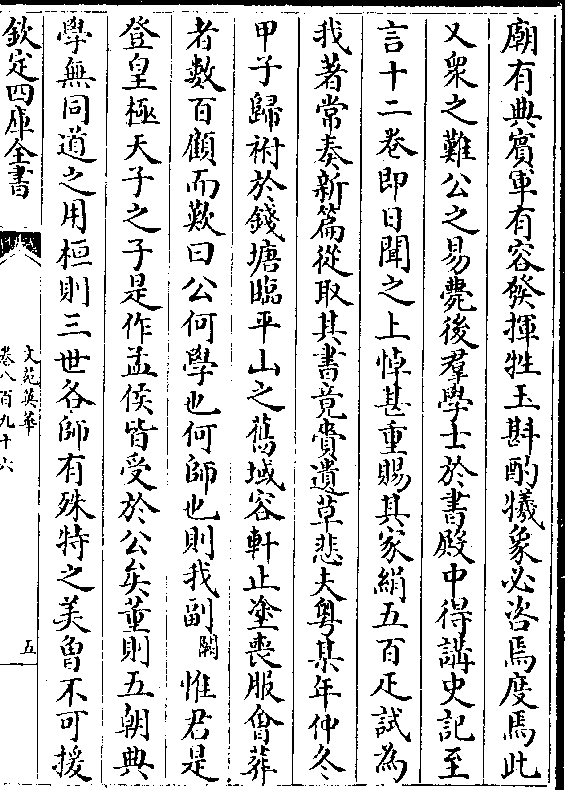 廟有典賓軍有容發揮牲玉斟酌犧象必咨焉度焉此
又衆之難公之易薨後羣學士於書殿中得講史記至
言十二卷即日聞之上悼甚重賜其家絹五百疋試為
我著常奏新篇從取其書竟賷遺草悲夫粤某年仲冬
甲子歸祔於錢塘臨平山之舊域容軒止塗喪服會葬
者數百顧而歎曰公何學也何師也則我副闕惟君是
登皇極天子之子是作孟侯皆受於公矣董則五朝典
學無同道之用桓則三世各師有殊特之美魯不可援
欽定四庫全書
文苑英華
卷八百九十六
五